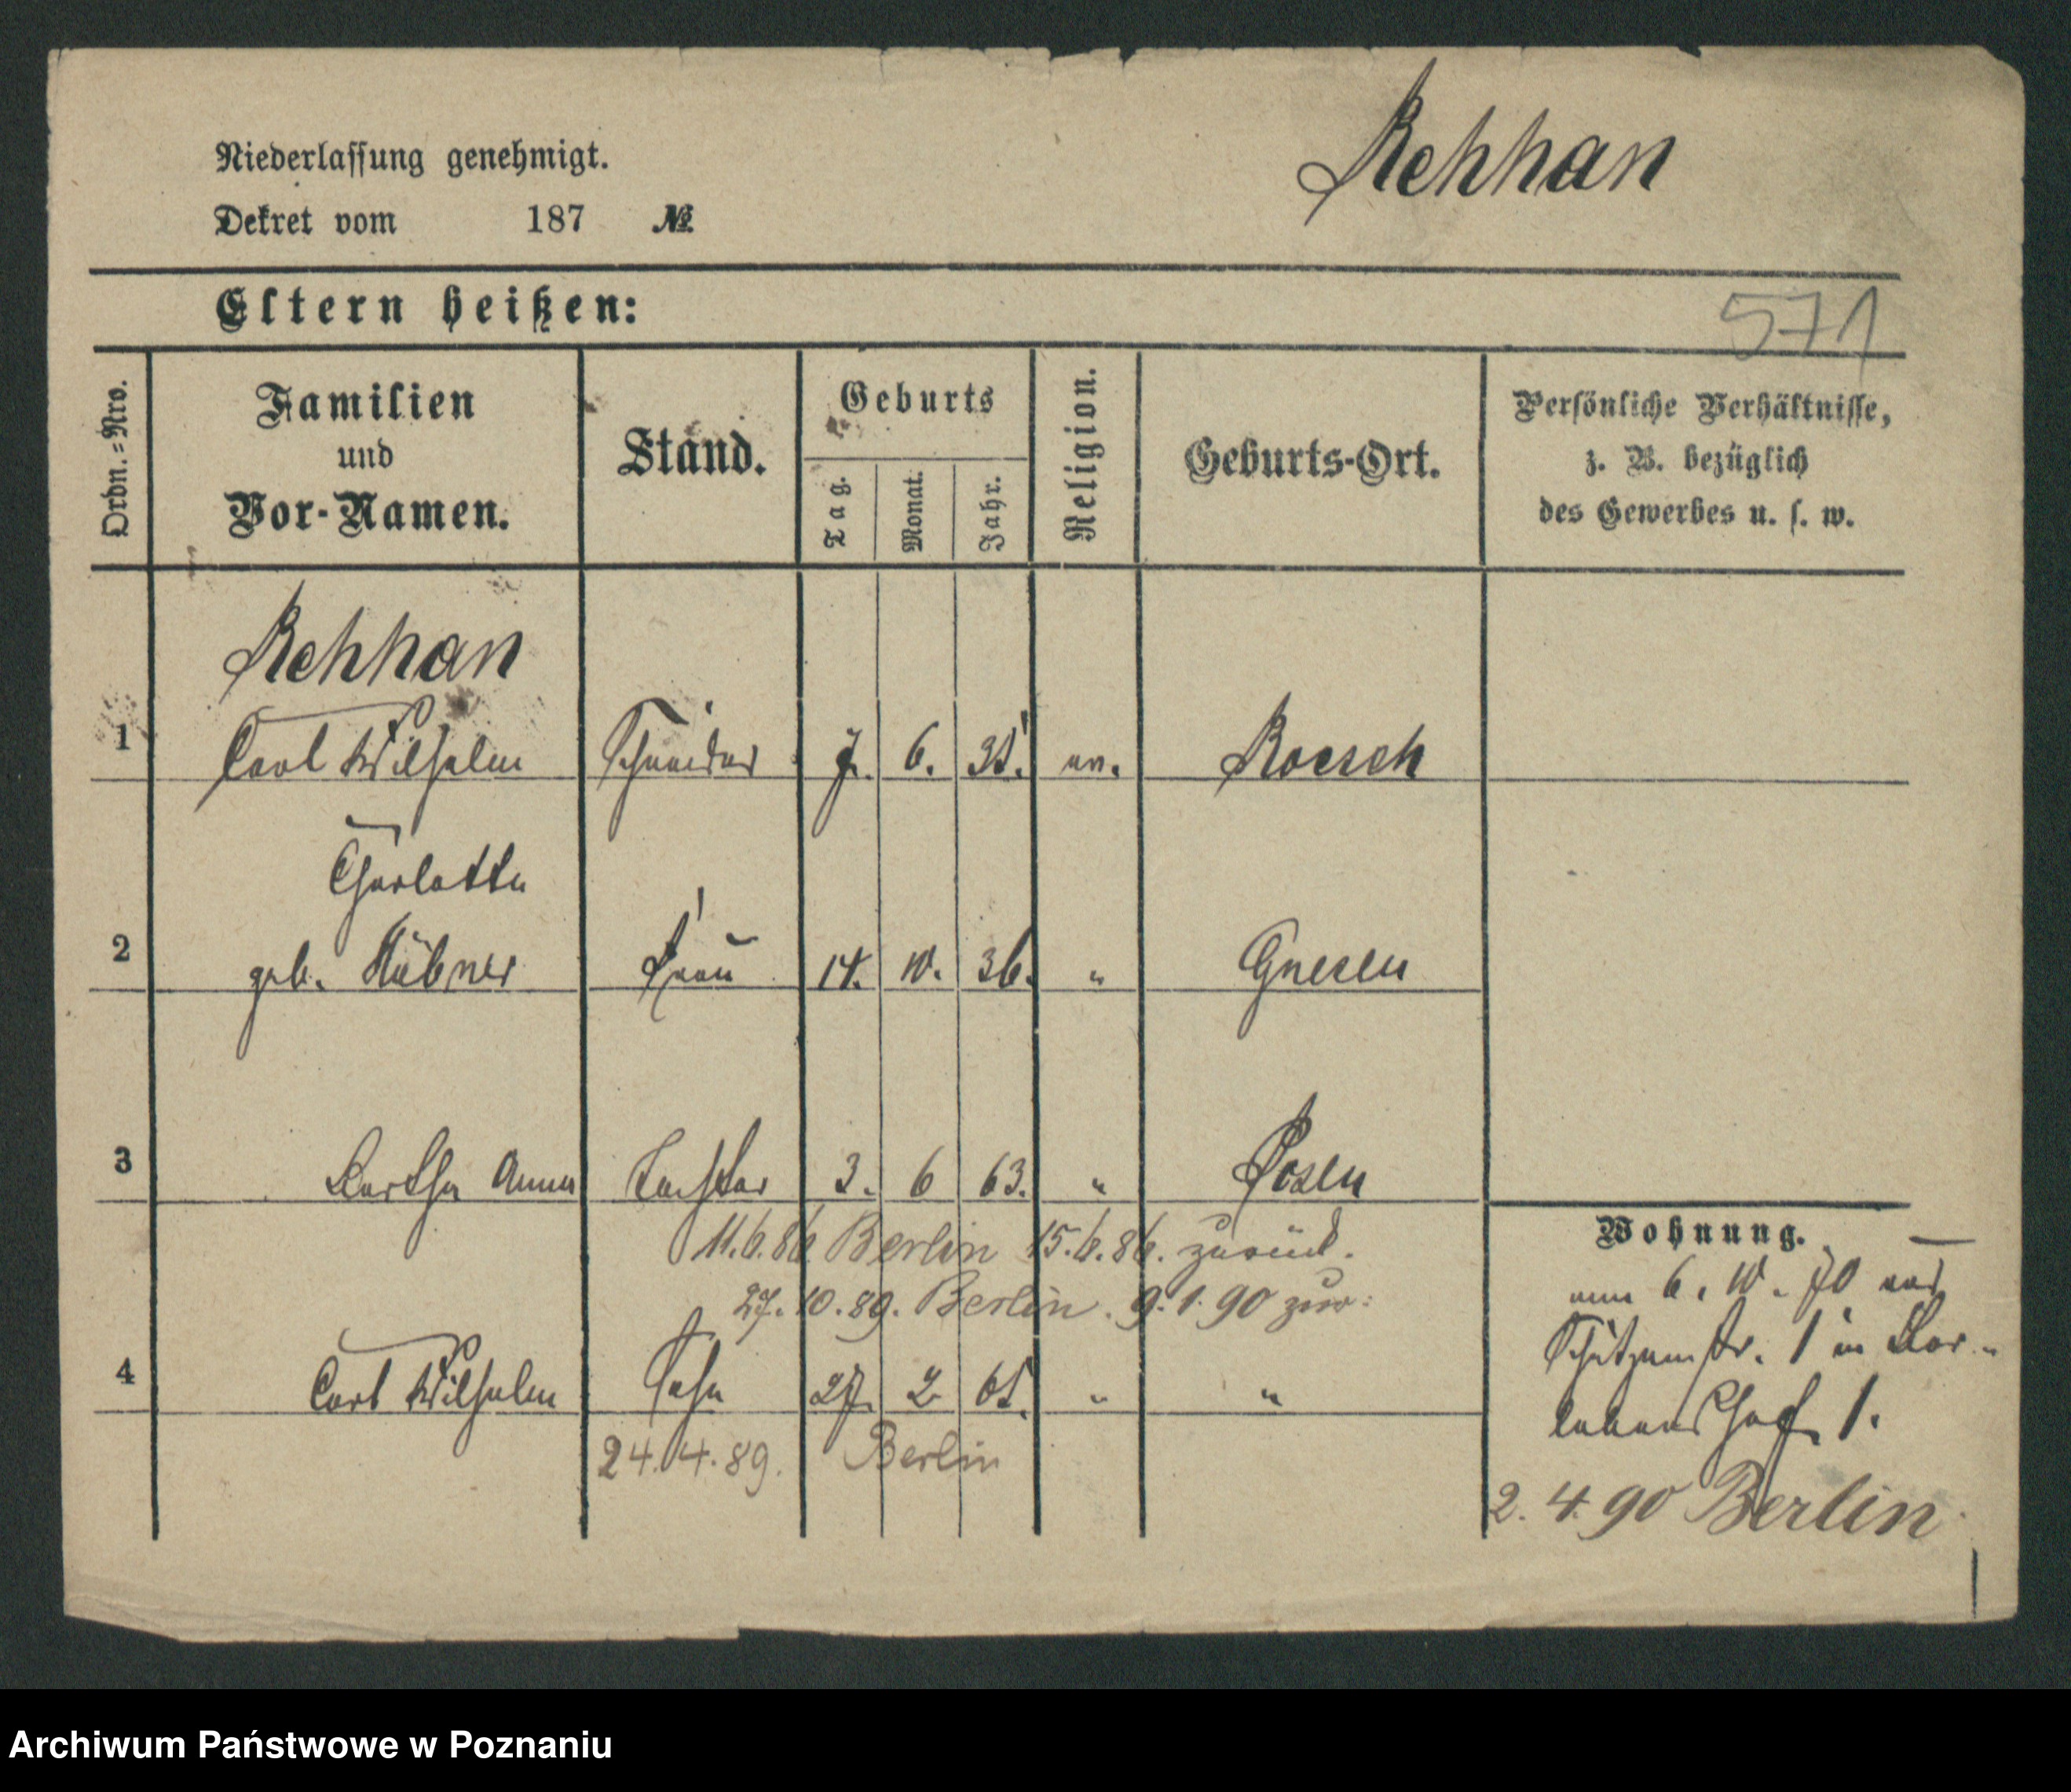 Rehhan
Niederlassung genehmigt.
Dekret vom 187 №
Eltern heißen:
571
Ordn.=Nro.
Familien
und
Vor-Namen.
Stand.
Geburts
Tag.
Monat.
Jahr.
Religion.
Geburts-Ort.
Persönliche Verhältnisse,
z. B. bezüglich
des Gewerbes u. s. w.
Rehhan
1 Carl Wilhelm Schneider 7. 6. ev. Roesch
Charlotte
2 geb. Hübner Frau 14. 10. 36. " Gnesen
3 Bertha Anna Tochter 3. 6 63. " Posen
11.6.86 Berlin 15.6.86. zurück.
27.10.89. Berlin. 9.1.90 zur:
4 Carl Wilhelm Sohn 27. 2 65. " "
24.4.89. Berlin
Wohnung.
6. 10. 70
Schützenstr. 1 in
1.
2. 4. 90 Berlin
Archiwum Państwowe w Poznaniu